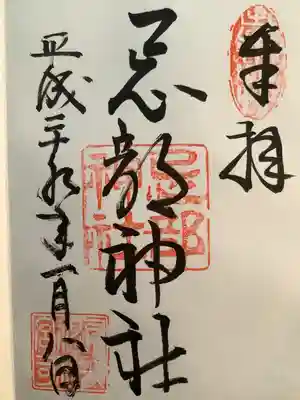 奉拝
忌部神社
忌部
神社
平成二十九年一月八日